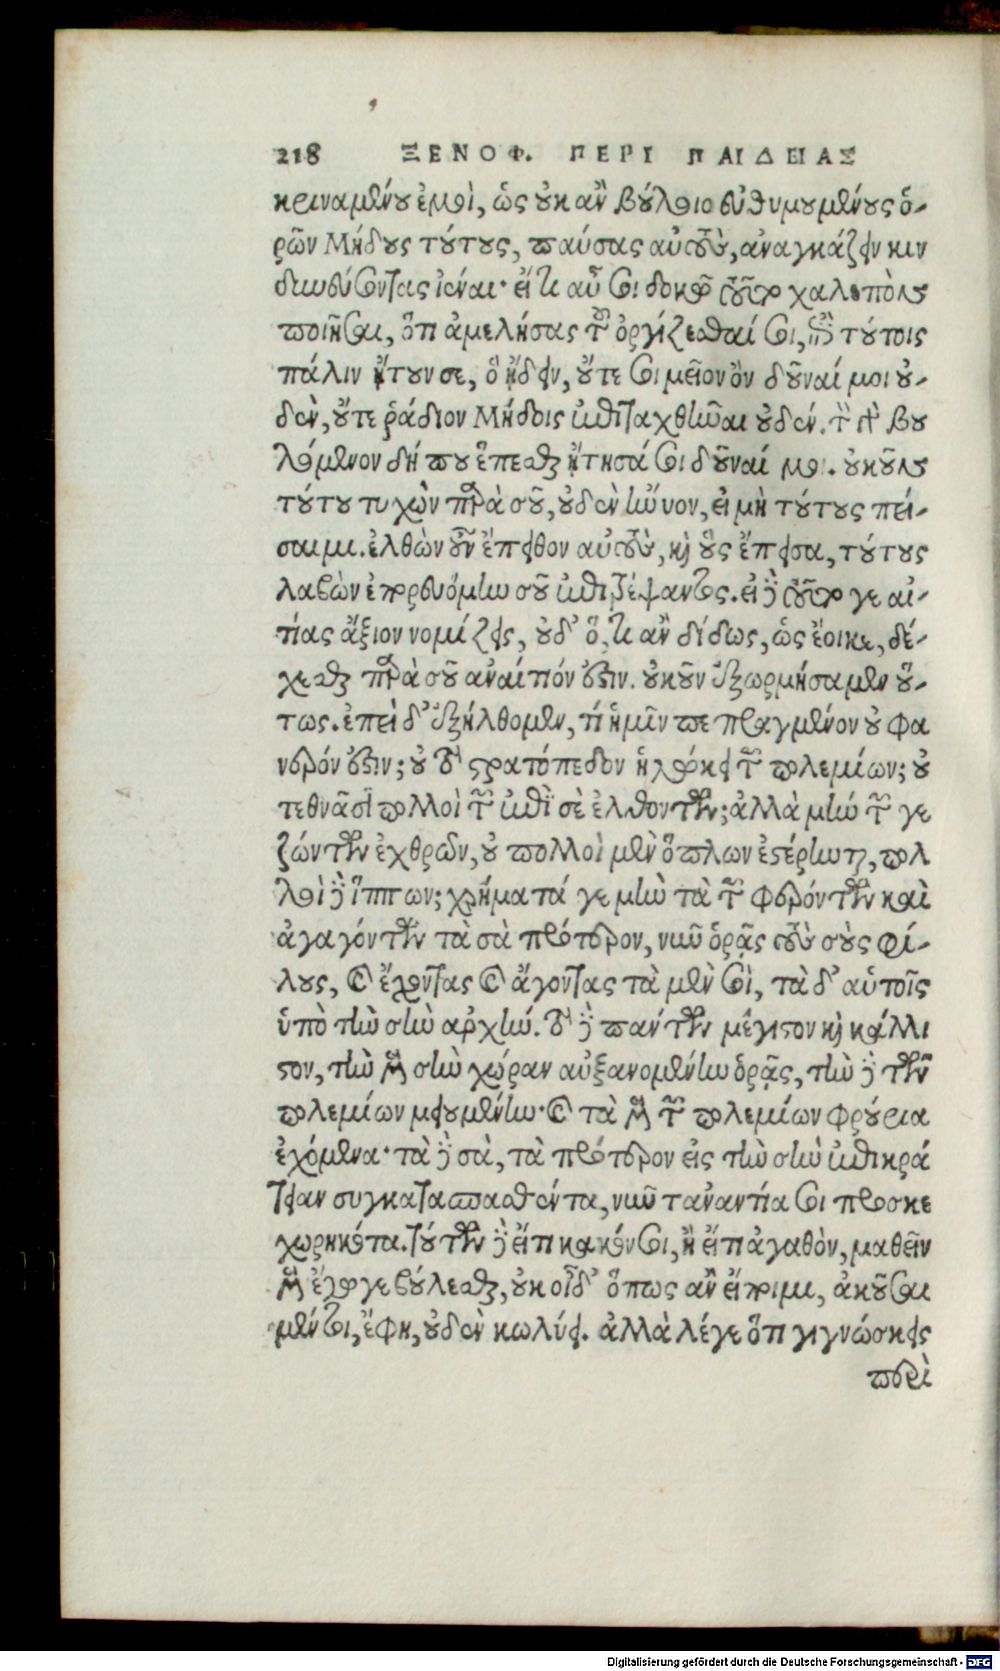 218 ΞΕΝΟΦ. ΠΕΡΙ ΠΑΙΔΕΙΑΣ
κριναμένου ἐμοὶ, ὡς οὐκ ἂν βούλοιο εὐθυμουμένους ὁ-
ρῶν Μήδους τούτους, παύσας αὐτοὺς, ἀναγκάζειν κιν
δυνεύσοντας ἰέναι· εἴ τι αὖ σοι δοκῶ τοῦτο χαλεπὸν
ποιῆσαι, ὅτι ἀμελήσας τοῦ ὀργίζεσθαί σοι, ἐπὶ τούτοις
πάλιν ᾔτουν σε, ὃ ᾔδειν, οὔτε σοι μεῖον ὂν δοῦναί μοι οὐ-
δὲν, οὔτε ῥάδιον Μήδοις ἐπιταχθῆναι οὐδέν. τὸν γὰρ βου
λόμενον δή που ἕπεσθαι ᾔτησά σοι δοῦναί μοι. οὐκοῦν
τούτου τυχὼν παρὰ σοῦ, οὐδὲν ἤνυον, εἰ μὴ τούτους πεί-
σαιμι. ἐλθὼν οὖν ἔπειθον αὐτοὺς, καὶ οὓς ἔπεισα, τούτους
λαβὼν ἐπορευόμην σοῦ ἐπιτρέψαντος. εἰ δὲ τοῦτό γε αἰ-
τίας ἄξιον νομίζεις, οὐδ' ὅ, τι ἂν δίδως, ὡς ἔοικε, δέ-
χεσθαι παρὰ σοῦ ἀναίτιόν ἐστιν. οὐκοῦν ἐξωρμήσαμεν οὕ-
τως. ἐπεὶ δ' ἐξήλθομεν, τί ἡμῖν πεπραγμένον οὐ φα
νερόν ἐστιν; οὐ τὸ στρατόπεδον ἥλωκε τῶν πολεμίων; οὐ
τεθνᾶσι πολλοὶ τῶν ἐπὶ σὲ ἐλθόντων; ἀλλὰ μὴν τῶν γε
ζώντων ἐχθρῶν, οὐ πολλοὶ μὲν ὅπλων ἐστέρηνται, πολ
λοὶ δὲ ἵππων; χρήματά γε μὴν τὰ τῶν φερόντων καὶ
ἀγαγόντων τὰ σὰ πρότερον, νῦν ὁρᾷς τοὺς σοὺς φί-
λους, καὶ ἔχοντας καὶ ἄγοντας τὰ μὲν σοὶ, τὰ δ' αὑτοῖς
ὑπὸ τὴν σὴν αρχήν. τὸ δὲ πάντων μέγιστον καὶ κάλλι
στον, τὴν μὲν σὴν χώραν αὐξανομένην ὁρᾷς, τὴν δὲ τῶν
πολεμίων μειουμένην· καὶ τὰ μὲν τῶν πολεμίων φρούρια
ἐχόμενα· τὰ δὲ σὰ, τὰ πρότερον εἰς τὴν σὴν ἐπικρά
τειαν συγκατασπασθέντα, νῦν τἀναντία σοι προσκε
χωρηκότα. τούτων δὲ εἴ τι κακόν σοι, ἢ εἴ τι ἀγαθὸν, μαθεῖν
μὲν ἔγωγε βούλεσθαι, οὐκ οἶδ' ὅπως ἂν εἴποιμι, ἀκοῦσαι
μέντοι, ἔφη, οὐδὲν κωλύει. ἀλλὰ λέγε ὅτι γιγνώσκεις
περὶ
Digitalisierung gefördert durch die Deutsche Forschungsgemeinschaft - DFG